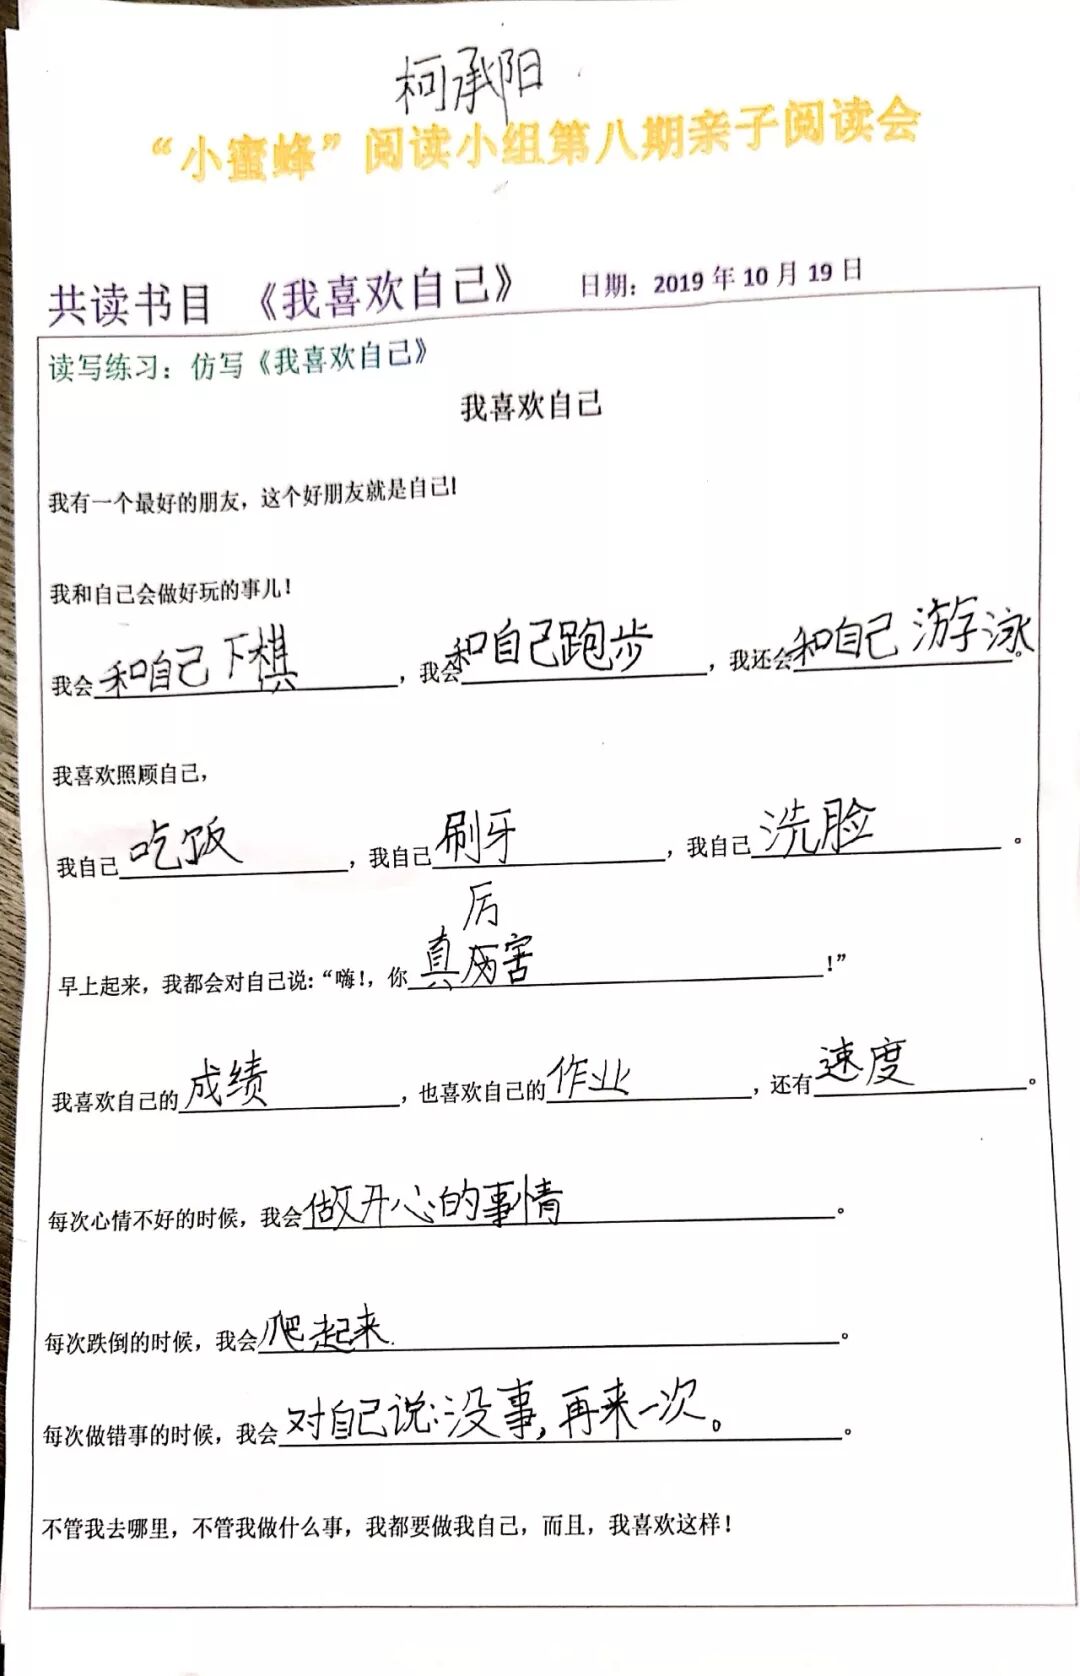 柯承阳
“小蜜蜂”阅读小组第八期亲子阅读会
共读书目 《我喜欢自己》 日期：2019年10月19日
读写练习：仿写《我喜欢自己》
我喜欢自己
我有一个最好的朋友，这个好朋友就是自己!
我和自己会做好玩的事儿！
我会和自己下棋，我会和自己跑步，我还会和自己游泳。
我喜欢照顾自己，
我自己吃饭，我自己刷牙，我自己洗脸。
厉
早上起来，我都会对自己说：“嗨!，你真厉害!”
我喜欢自己的成绩，也喜欢自己的作业，还有速度。
每次心情不好的时候，我会做开心的事情。
每次跌倒的时候，我会爬起来。
每次做错事的时候，我会对自己说：没事，再来一次。。
不管我去哪里，不管我做什么事，我都要做我自己，而且，我喜欢这样！